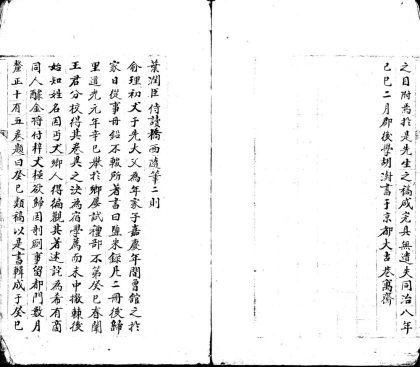 之日附焉於是先生之稿咸完具無遺矣同治八年
己巳二月郡後學胡澍書于京都大吉巷寓齋
葉潤臣侍讀橋西隨筆二則
俞理初大令于先大父為年家子嘉慶年間曾館之於
家日從事丹鉛不輟所著書曰鹽米錄凡二冊後歸
里道光元年辛巳舉於鄉屢試禮部不第癸巳春闈
王君分校得其卷異之決為宿學薦而未中撤棘後
始知姓名因丐大鄉人得徧觀其著述詫為希有商
同人醵金將付梓大極欲歸因剞劂事留都門數月
釐正十有五卷題曰癸巳類稿以是書輯成于癸巳